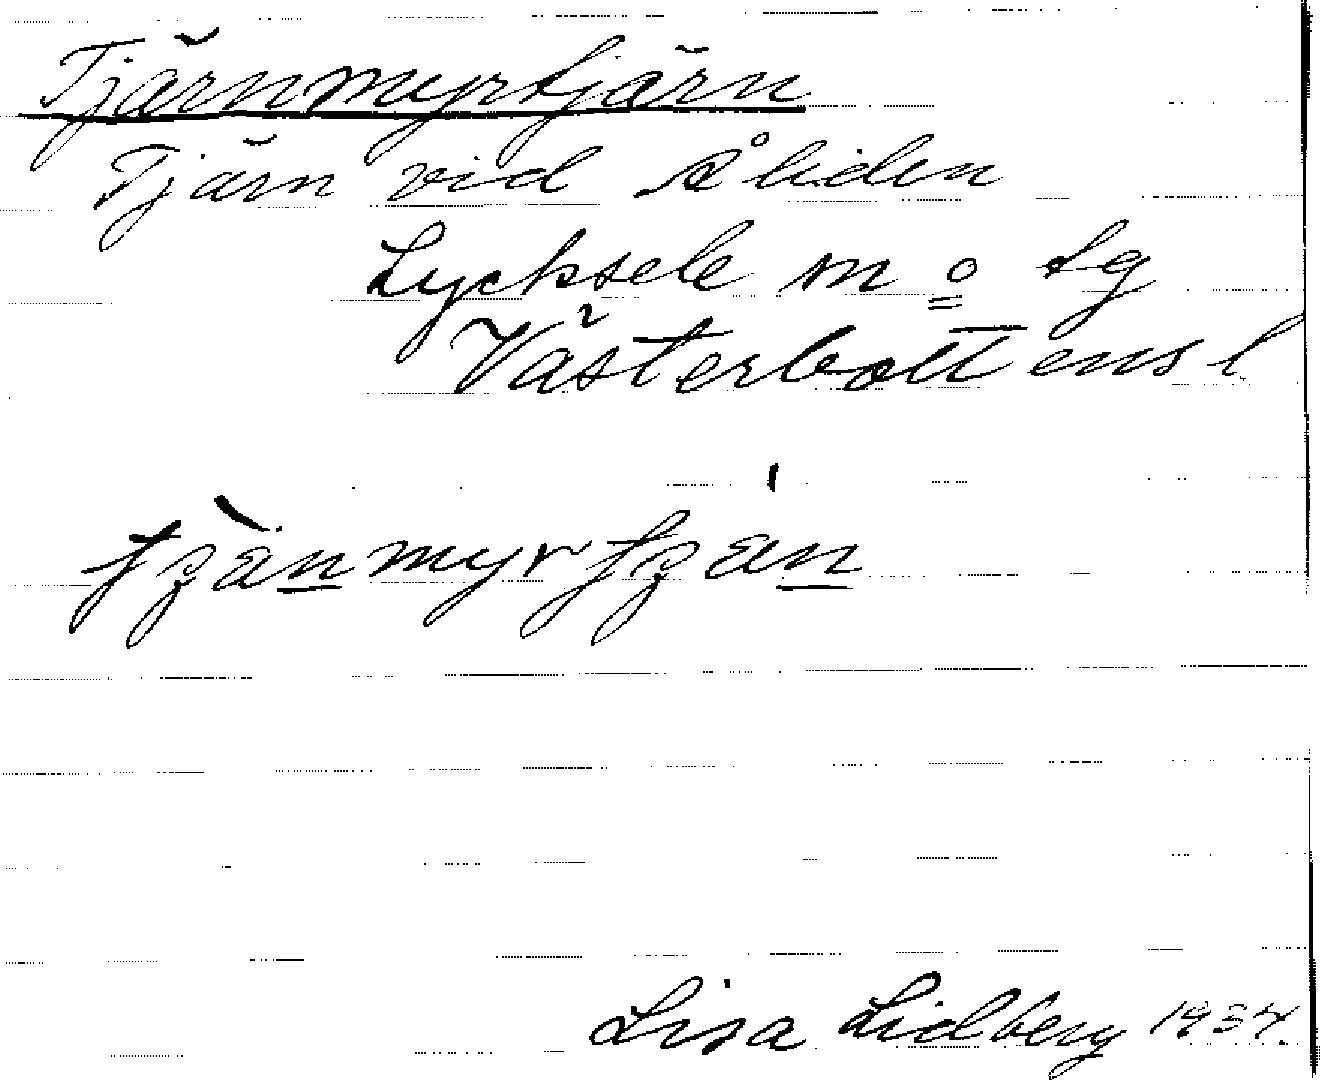 Tjärnmyrtjärn
Tjärn vid Åliden
Lycksele m o tg
Västerbottens l.
Lisa Lidberg 1934.